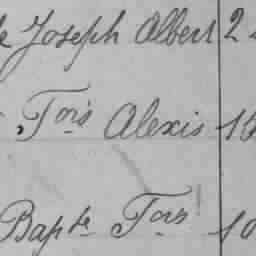 Joseph Albert 2
Tors Alexis 15
Bapte Tors 10